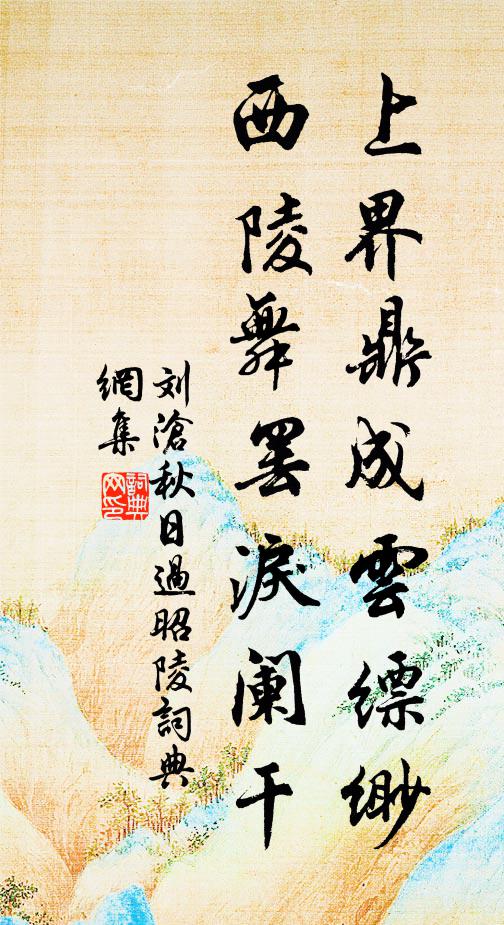 上界鼎成雲縹緲
西陵舞罷淚阑干
刘滄秋日過昭陵詞典
網集
詞典
网印